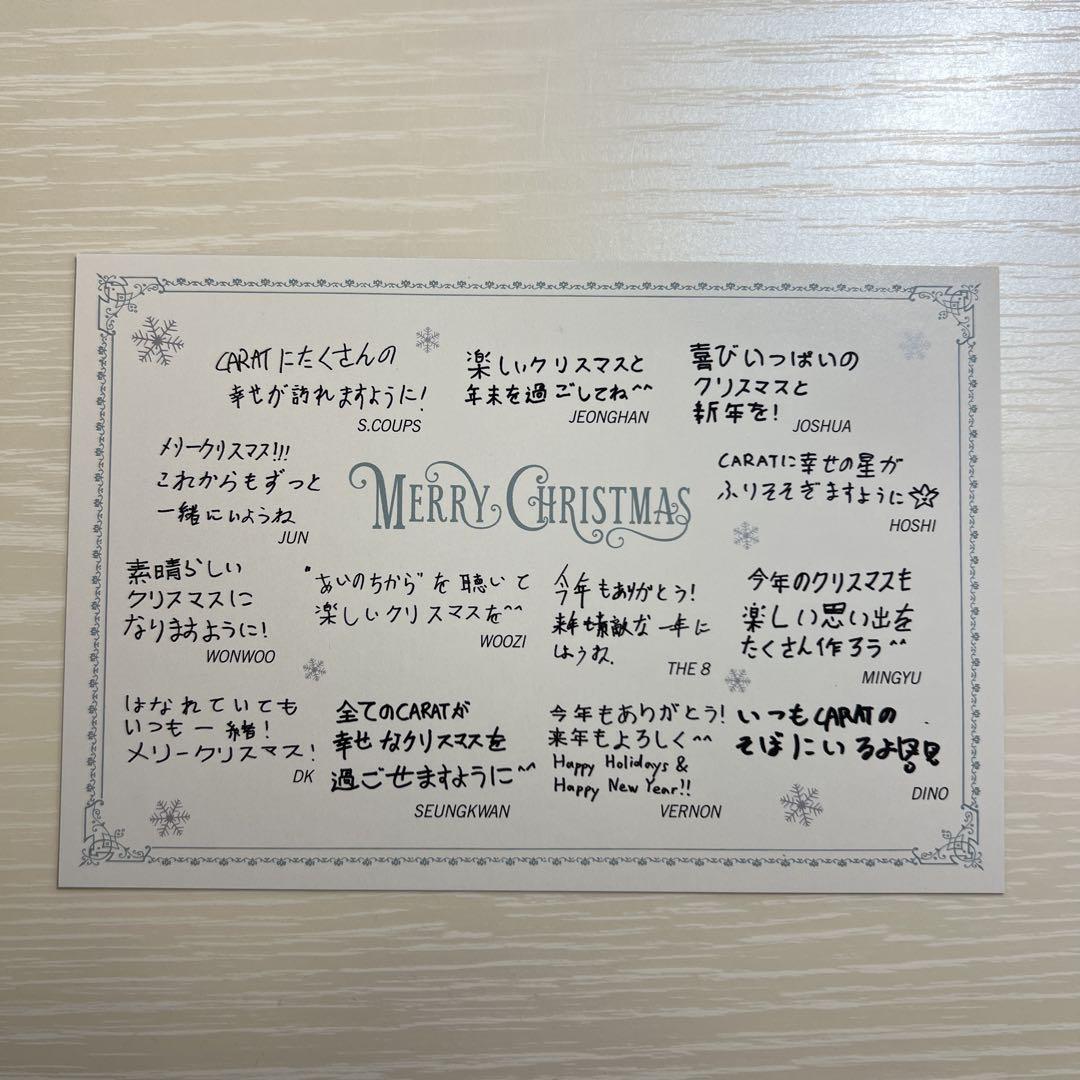 CARATにたくさんの
幸せが訪れますように!
S.COUPS
楽しいクリスマスと
年末を過ごしてね^^
JEONGHAN
喜びいっぱいの
クリスマスと
新年を!
JOSHUA
メリークリスマス!!!
これからもずっと
一緒にいようね
JUN
MERRY CHRISTMAS
CARATに幸せの星が
ふりそそぎますように☆
HOSHI
素晴らしい
クリスマスに
なりますように!
WONWOO
"あいのちから"を聴いて
楽しいクリスマスを^^
WOOZI
今年もありがとう!
来年も素敵な一年に
しようね.
THE 8
今年のクリスマスも
楽しい思い出を
たくさん作ろう^^
MINGYU
はなれていても
いつも一緒!
メリークリスマス!
DK
全てのCARATが
幸せなクリスマスを
過ごせますように^^
SEUNGKWAN
今年もありがとう!
来年もよろしく^^
Happy Holidays &
Happy New Year!!
VERNON
いつもCARATの
そばにいるよ
DINO